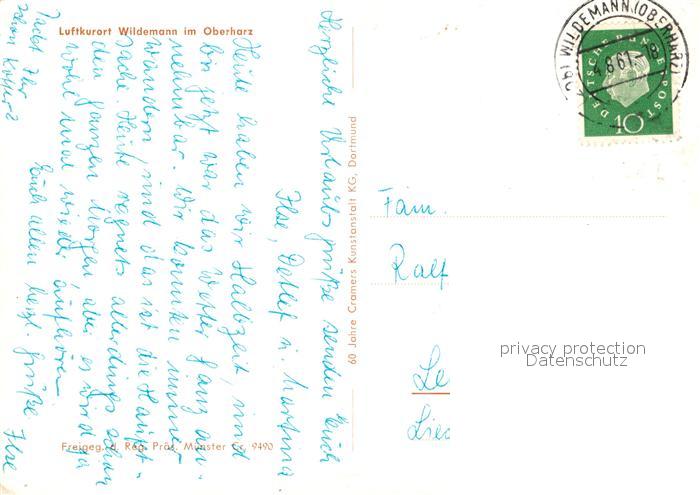 Luftkurort Wildemann im Oberharz
Herzliche Urlaubsgrüße senden Euch
Ilse, Detlef u. Martina
Heute haben wir Halbzeit, und
bis jetzt war das Wetter ganz an-
nehmbar. Wir konnten immer
wandern, und das ist die Haupt-
sache. Heute regnets allerdings schon
den ganzen Morgen aber es wird ja
wohl mal wieder aufhören.
Euch allen herzl. Grüße. Ilse
Packt Ihr
schon Koffer?
Freigeg. d. Reg. Präs. Münster Nr. 9490
60 Jahre Cramers Kunstanstalt KG, Dortmund
WILDEMANN (OBERHARZ)
DEUTSCHE BUNDESPOST
10
Fam.
Ralf
Le
privacy protection
Datenschutz